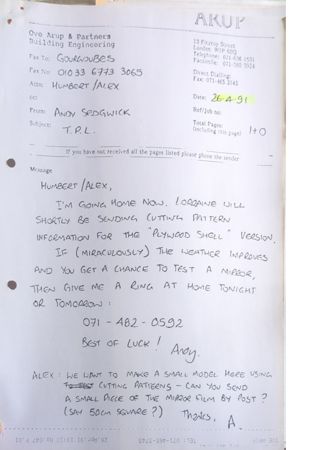 ARUP
Ove Arup & Partners
Building Engineering
13 Fitzroy Street
London W1P 6BQ
Telephone: 071-636 1531
Facsimile: 071-580 3924
Direct Dialling:
Fax: 071-465
Fax To: GOURGOUBES
Fax No: 01033 6773 3065
Attn: HUMBERT/ALEX
cc:
Date: 26-4-91
From: ANDY SEDGWICK
Ref/Job no:
Subject: T.P.L.
Total Pages: 1+0
(including this page)
If you have not received all the pages listed please phone the sender
Message
HUMBERT/ALEX,
I'M GOING HOME NOW. LORRAINE WILL
SHORTLY BE SENDING CUTTING PATTERN
INFORMATION FOR THE "PLYWOOD SHELL" VERSION.
IF (MIRACULOUSLY) THE WEATHER IMPROVES
AND YOU GET A CHANCE TO TEST A MIRROR,
THEN GIVE ME A RING AT HOME TONIGHT
OR TOMORROW:
071-482-0592
BEST OF LUCK! Andy.
ALEX: WE WANT TO MAKE A SMALL MODEL HERE USING
CUTTING PATTERNS – CAN YOU SEND
A SMALL PIECE OF THE MIRROR FILM BY POST?
(SAY 50CM SQUARE?) Thanks, A.